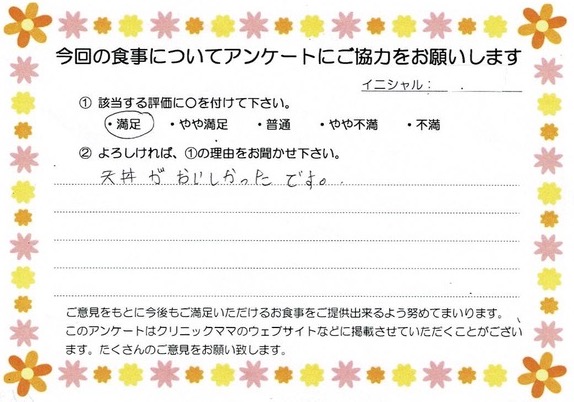 今回の食事についてアンケートにご協力をお願いします
イニシャル： .
① 該当する評価に○を付けて下さい。
・満足 ・やや満足 ・普通 ・やや不満 ・不満
② よろしければ、①の理由をお聞かせ下さい。
天丼が おいしかった です。
ご意見をもとに今後もご満足いただけるお食事をご提供出来るよう努めてまいります。
このアンケートはクリニックママのウェブサイトなどに掲載させていただくことがござい
ます。たくさんのご意見をお願い致します。